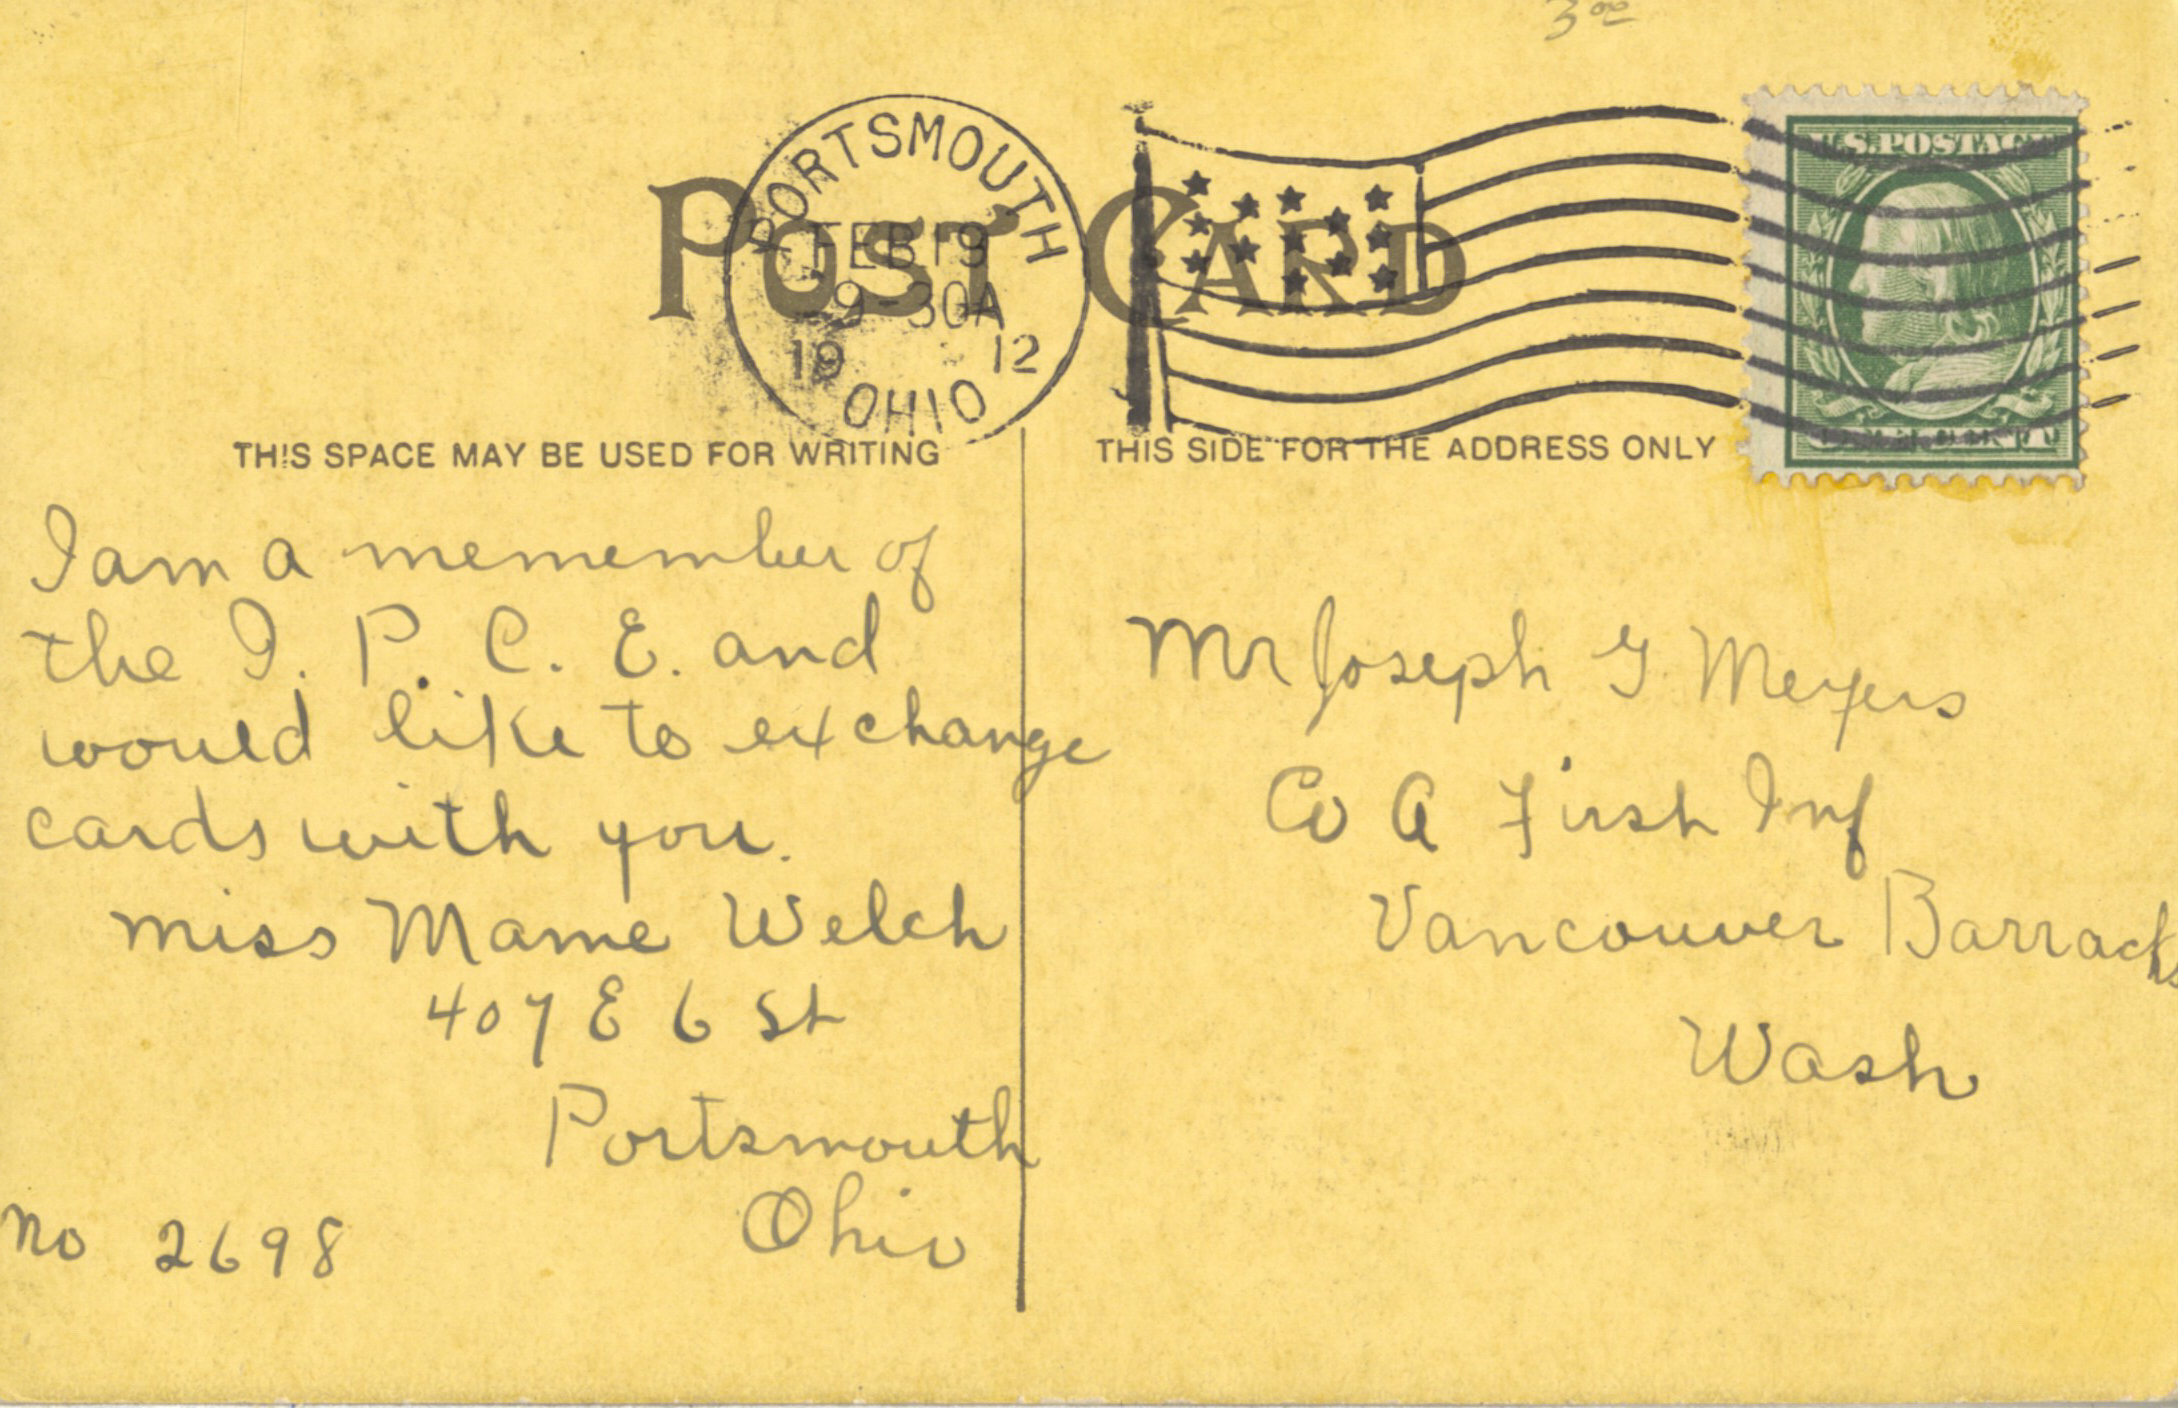 3 00
POST CARD
PORTSMOUTH
FEB 19
9-30A
19 12
OHIO
U.S. POSTAGE
THIS SPACE MAY BE USED FOR WRITING
THIS SIDE FOR THE ADDRESS ONLY
I am a memember of
the I. P. C. E. and
would like to exchange
cards with you.
miss Mame Welch
407 E 6 St
Portsmouth
Ohio
no 2698
Mr Joseph G Meyers
Co A First Inf
Vancouver Barracks
Wash